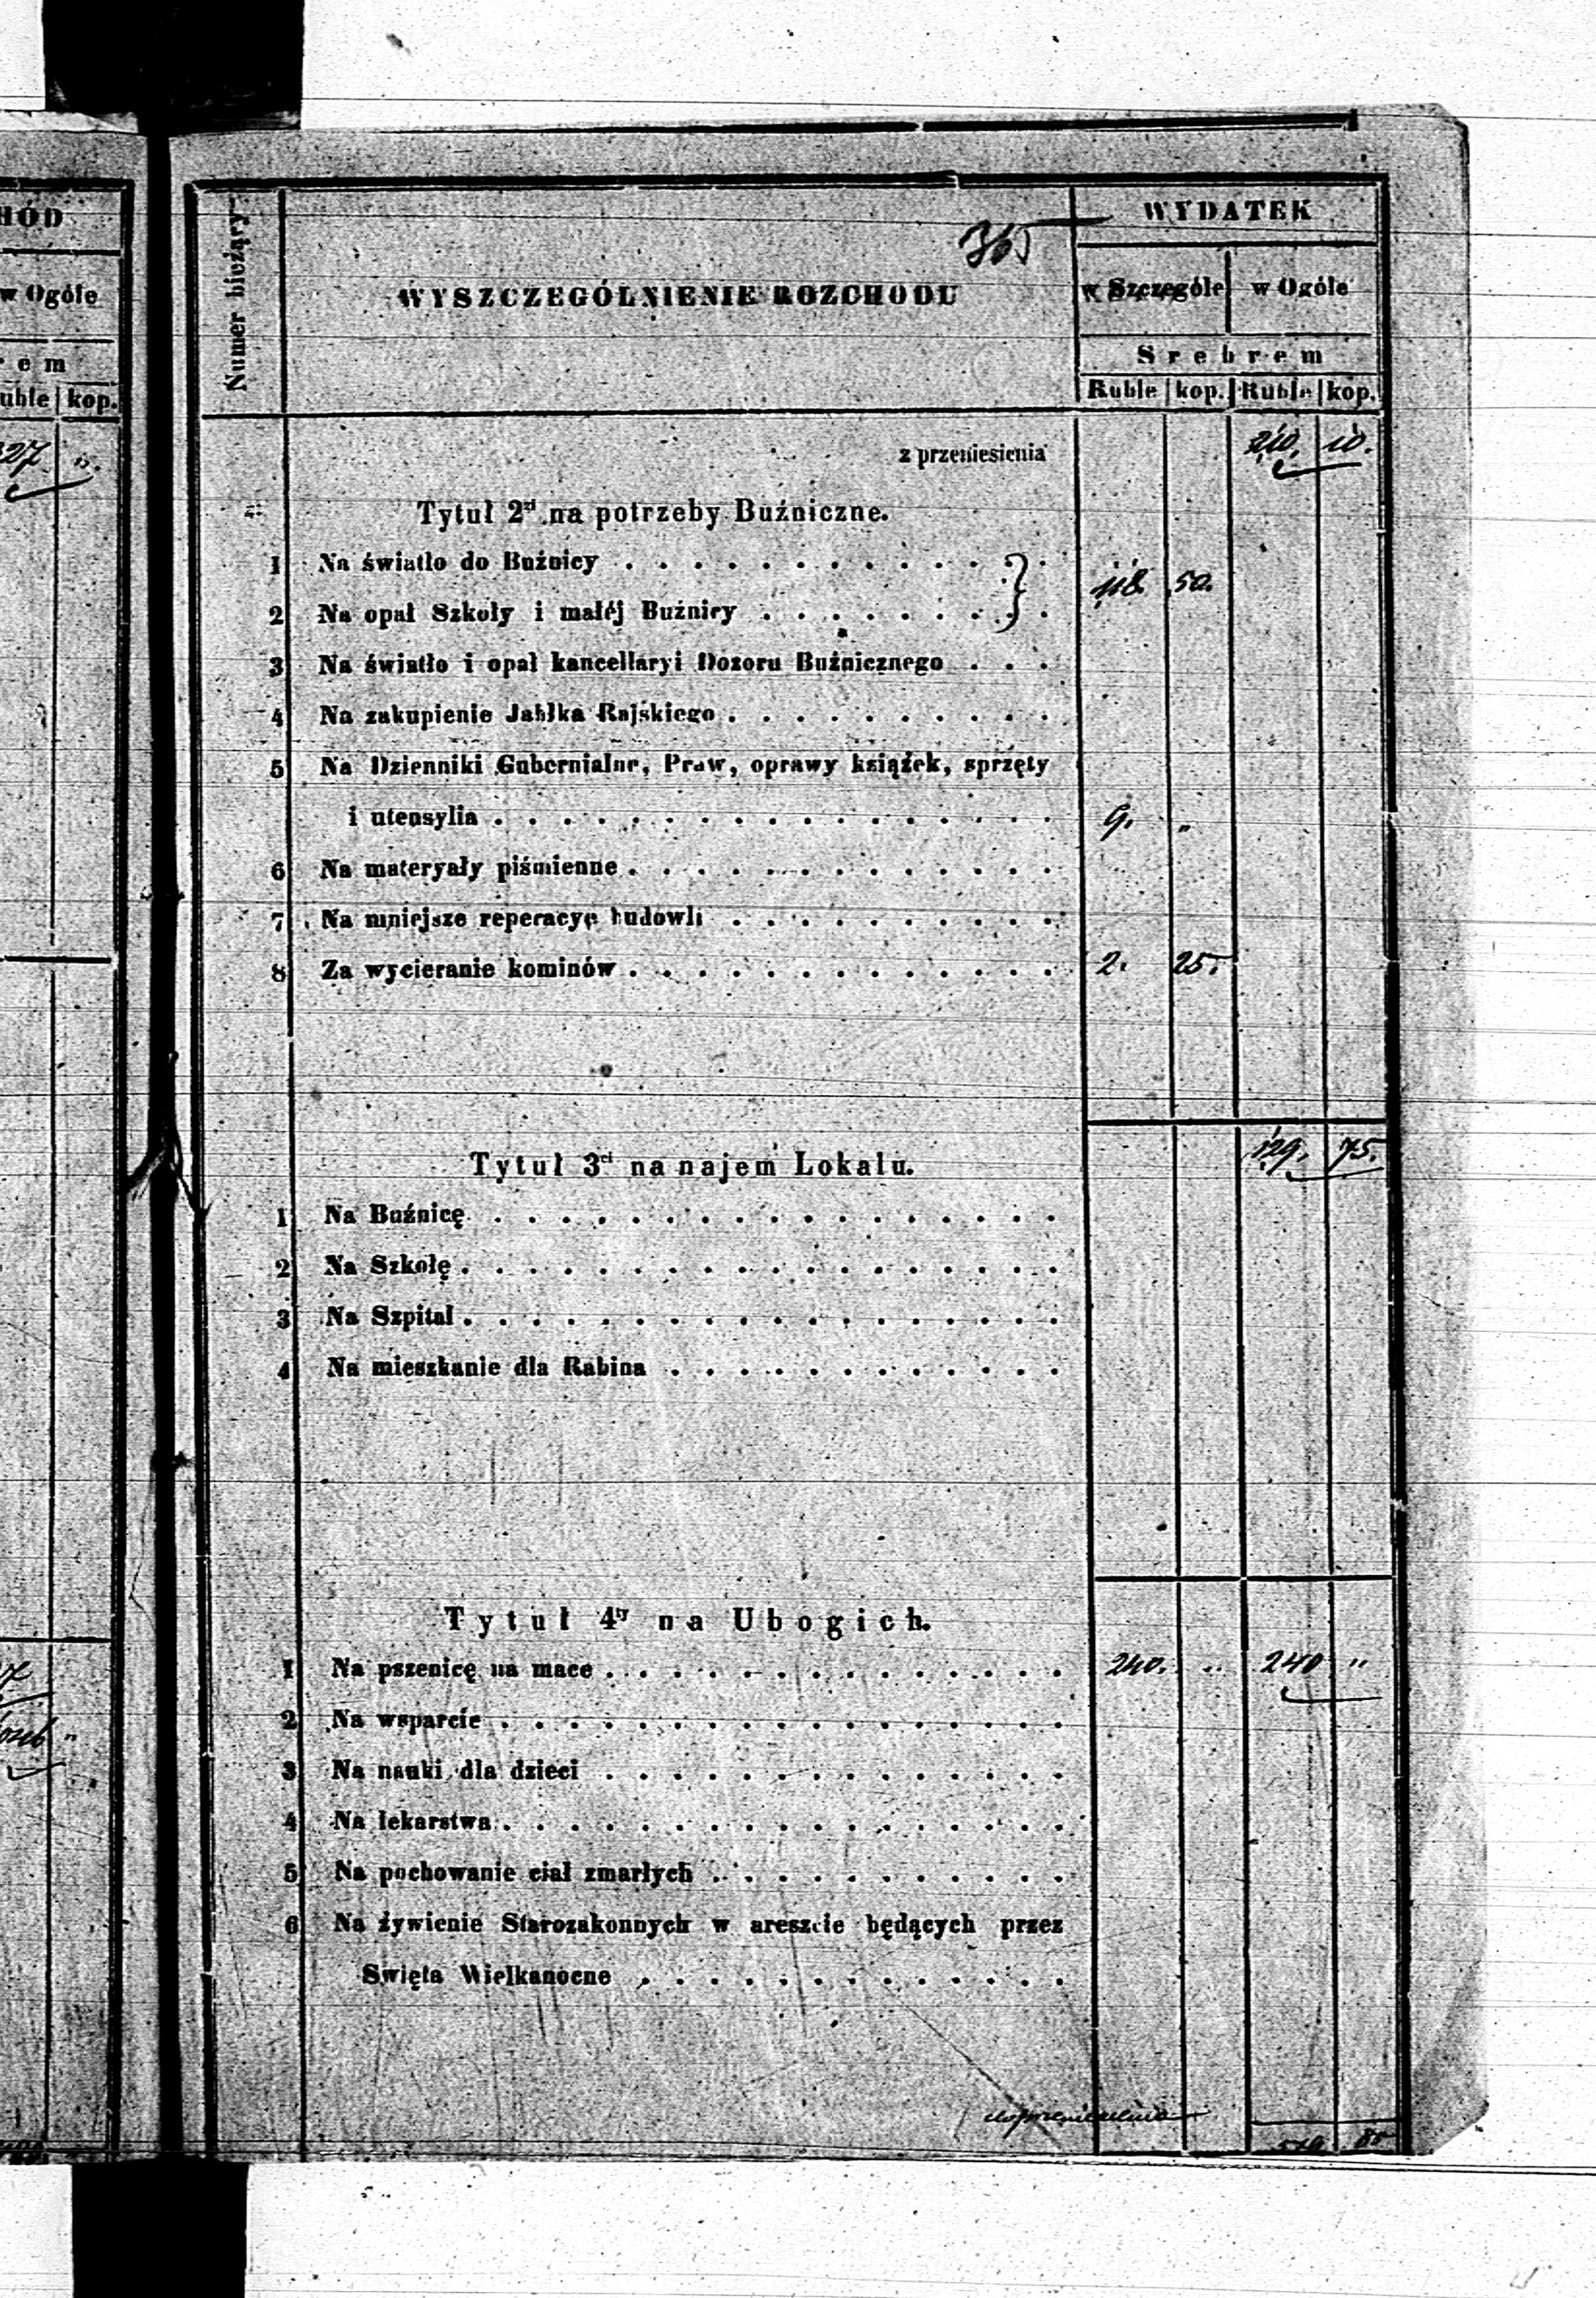 HÓD
w Ogóle
rem
uble kop.
27 „
365
Numer bieżący
WYSZCZEGÓLNIENIE ROZCHODU
WYDATEK
w Szczególe w Ogóle
Srebrem
Ruble kop. Ruble kop.
z przeniesienia 210. 10.
Tytuł 2gi na potrzeby Buźniczne.
1 Na światło do Buźnicy . . . . . . . . . . . . }
2 Na opał Szkoły i małéj Buźnicy . . . . . . . . } 118. 50.
3 Na światło i opał kancellaryi Dozoru Buźnicznego . . .
4 Na zakupienie Jabłka Rajskiego . . . . . . . . . .
5 Na Dzienniki Gubernialne, Praw, oprawy książek, sprzęty
i utensylia . . . . . . . . . . . . . . . . . 9. „
6 Na materyały piśmienne . . . . . . . . . . . . .
7 Na mniejsze reperacye budowli . . . . . . . . . .
8 Za wycieranie kominów . . . . . . . . . . . . . 2. 25.
129. 75.
Tytuł 3ci na najem Lokalu.
1 Na Buźnicę . . . . . . . . . . . . . . . . .
2 Na Szkołę . . . . . . . . . . . . . . . . . .
3 Na Szpital . . . . . . . . . . . . . . . . . .
4 Na mieszkanie dla Rabina . . . . . . . . . . . .
Tytuł 4ty na Ubogich.
1 Na pszenicę na mace . . . . . . . . . . . . . . 240. „ 240 „
2 Na wsparcie . . . . . . . . . . . . . . . . .
3 Na nauki dla dzieci . . . . . . . . . . . . . .
4 Na lekarstwa . . . . . . . . . . . . . . . . .
5 Na pochowanie ciał zmarłych . . . . . . . . . . .
6 Na żywienie Starozakonnych w areszcie będących przez
Swięta Wielkanocne . . . . . . . . . . . . .
do przeniesienia 579. 85